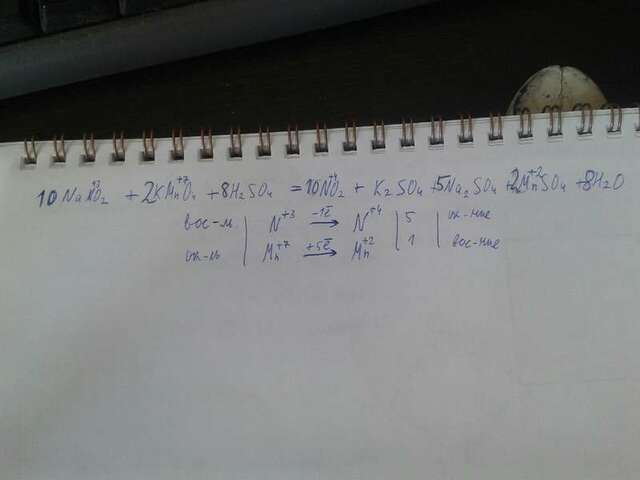 10NaN⁺³O₂ + 2KMn⁺⁷O₄ + 8H₂SO₄ = 10N⁺⁴O₂ + K₂SO₄ + 5Na₂SO₄ + 2Mn⁺²SO₄ + 8H₂O
вос-ль | N⁺³ –1ē → N⁺⁴ | 5 | ок-ние
ок-ль | Mn⁺⁷ +5ē → Mn⁺² | 1 | вос-ние